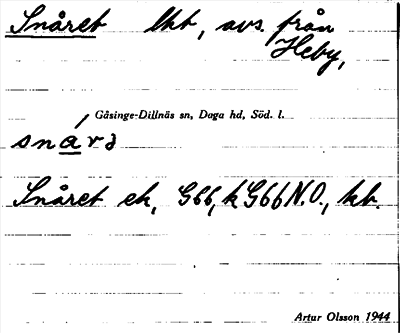 Snåret lht, avs. från
Heby,
Gåsinge-Dillnäs sn, Daga hd, Söd. l.
snárə
Snåret ek, G66, k G66 N.O., hb.
Artur Olsson 1944